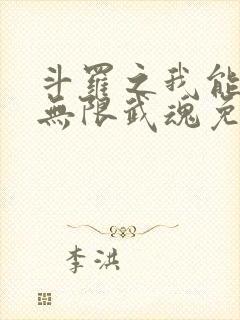 斗羅之我能
無限武魂免
李洪